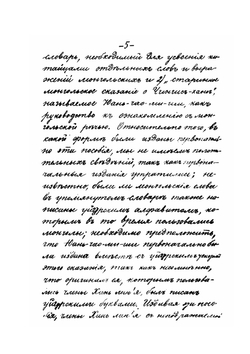 -5-
словарь, необходимый для усвоенія ки-
тайцами отдѣльныхъ словъ и выра-
женій монгольскихъ и 2/, старинное
монгольское сказаніе о Чингисъ-ханѣ,
называемое Юань-чао-ми-ши, какъ
руководство къ ознакомленію съ мон-
гольской рѣчью. Относительно того, въ
какой формѣ были изданы первонач.
но эти пособія, мы не имѣемъ положи-
тельныхъ свѣдѣній, такъ какъ первона-
чальныя изданія утратились; не-
извѣстно, были ли монгольскія слова
въ упомянутомъ словарѣ также на-
писаны уйгурскимъ алфавитомъ, ко-
торымъ въ то время пользовались
монголы; необходимо предположить,
что Юань-чао-ми-ши первоначально бы-
ла издана вмѣстѣ съ уйгурскимъ
этого сказанія, такъ какъ
что оригиналъ, которымъ пользова-
лись члены Хань-линь, былъ писанъ
уйгурскими буквами. Издавая эти посо-
бія, члены Хань-линь'я съ